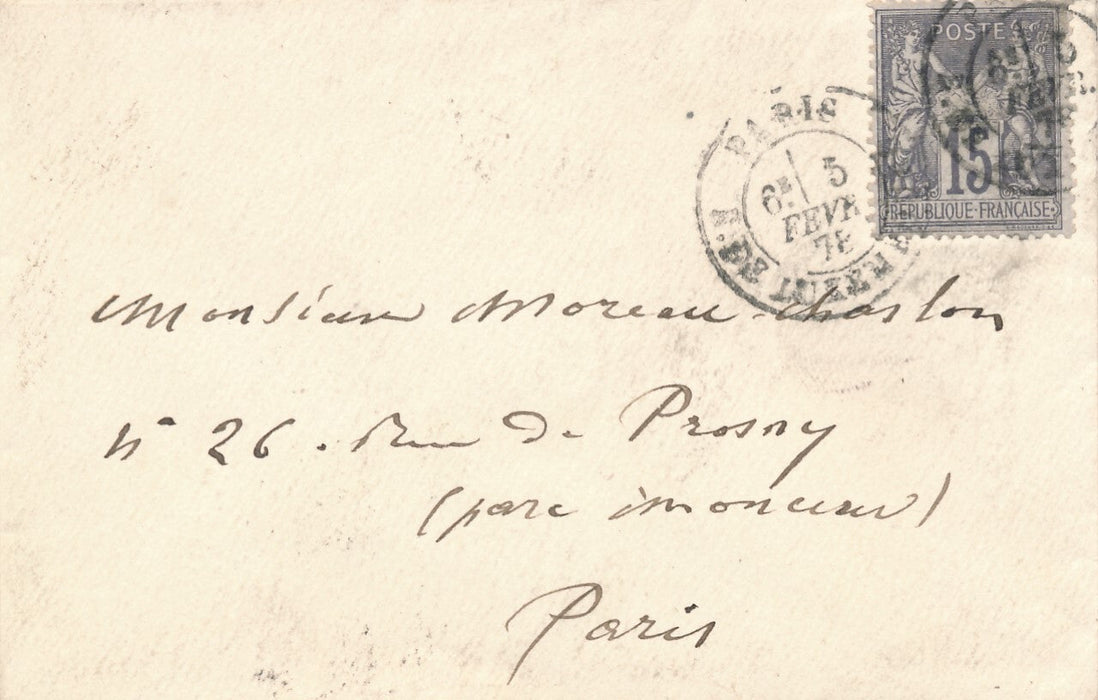 POSTES
15
REPUBLIQUE·FRANÇAISE
PARIS
6E 5
FEVR
78
R. DE LUXEMB
Monsieur Moreau-Chaslon
n° 26. Rue de Prosny
(parc monceau)
Paris